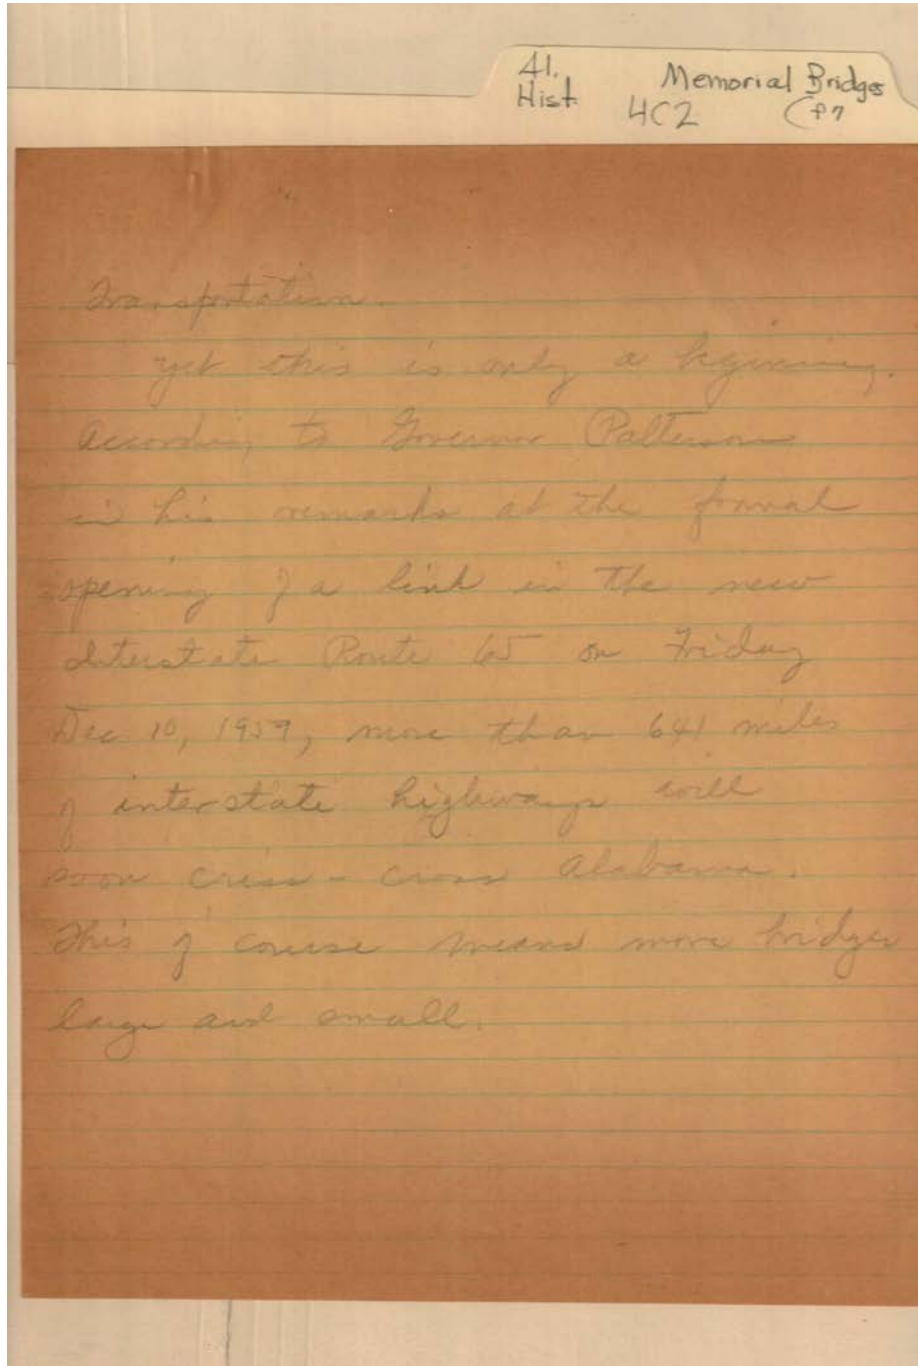 41. Memorial Bridges
Hist. 4C2 (P7
Transportation.
Yet this is only a begining.
According to Governor Patterson
in his remarks at the formal
opening of a link in the new
Interstate Route 65 on Friday
Dec. 10, 1959, more than 641 miles
of interstate highways will
soon criss-cross Alabama.
This of course means more bridges
large and small.